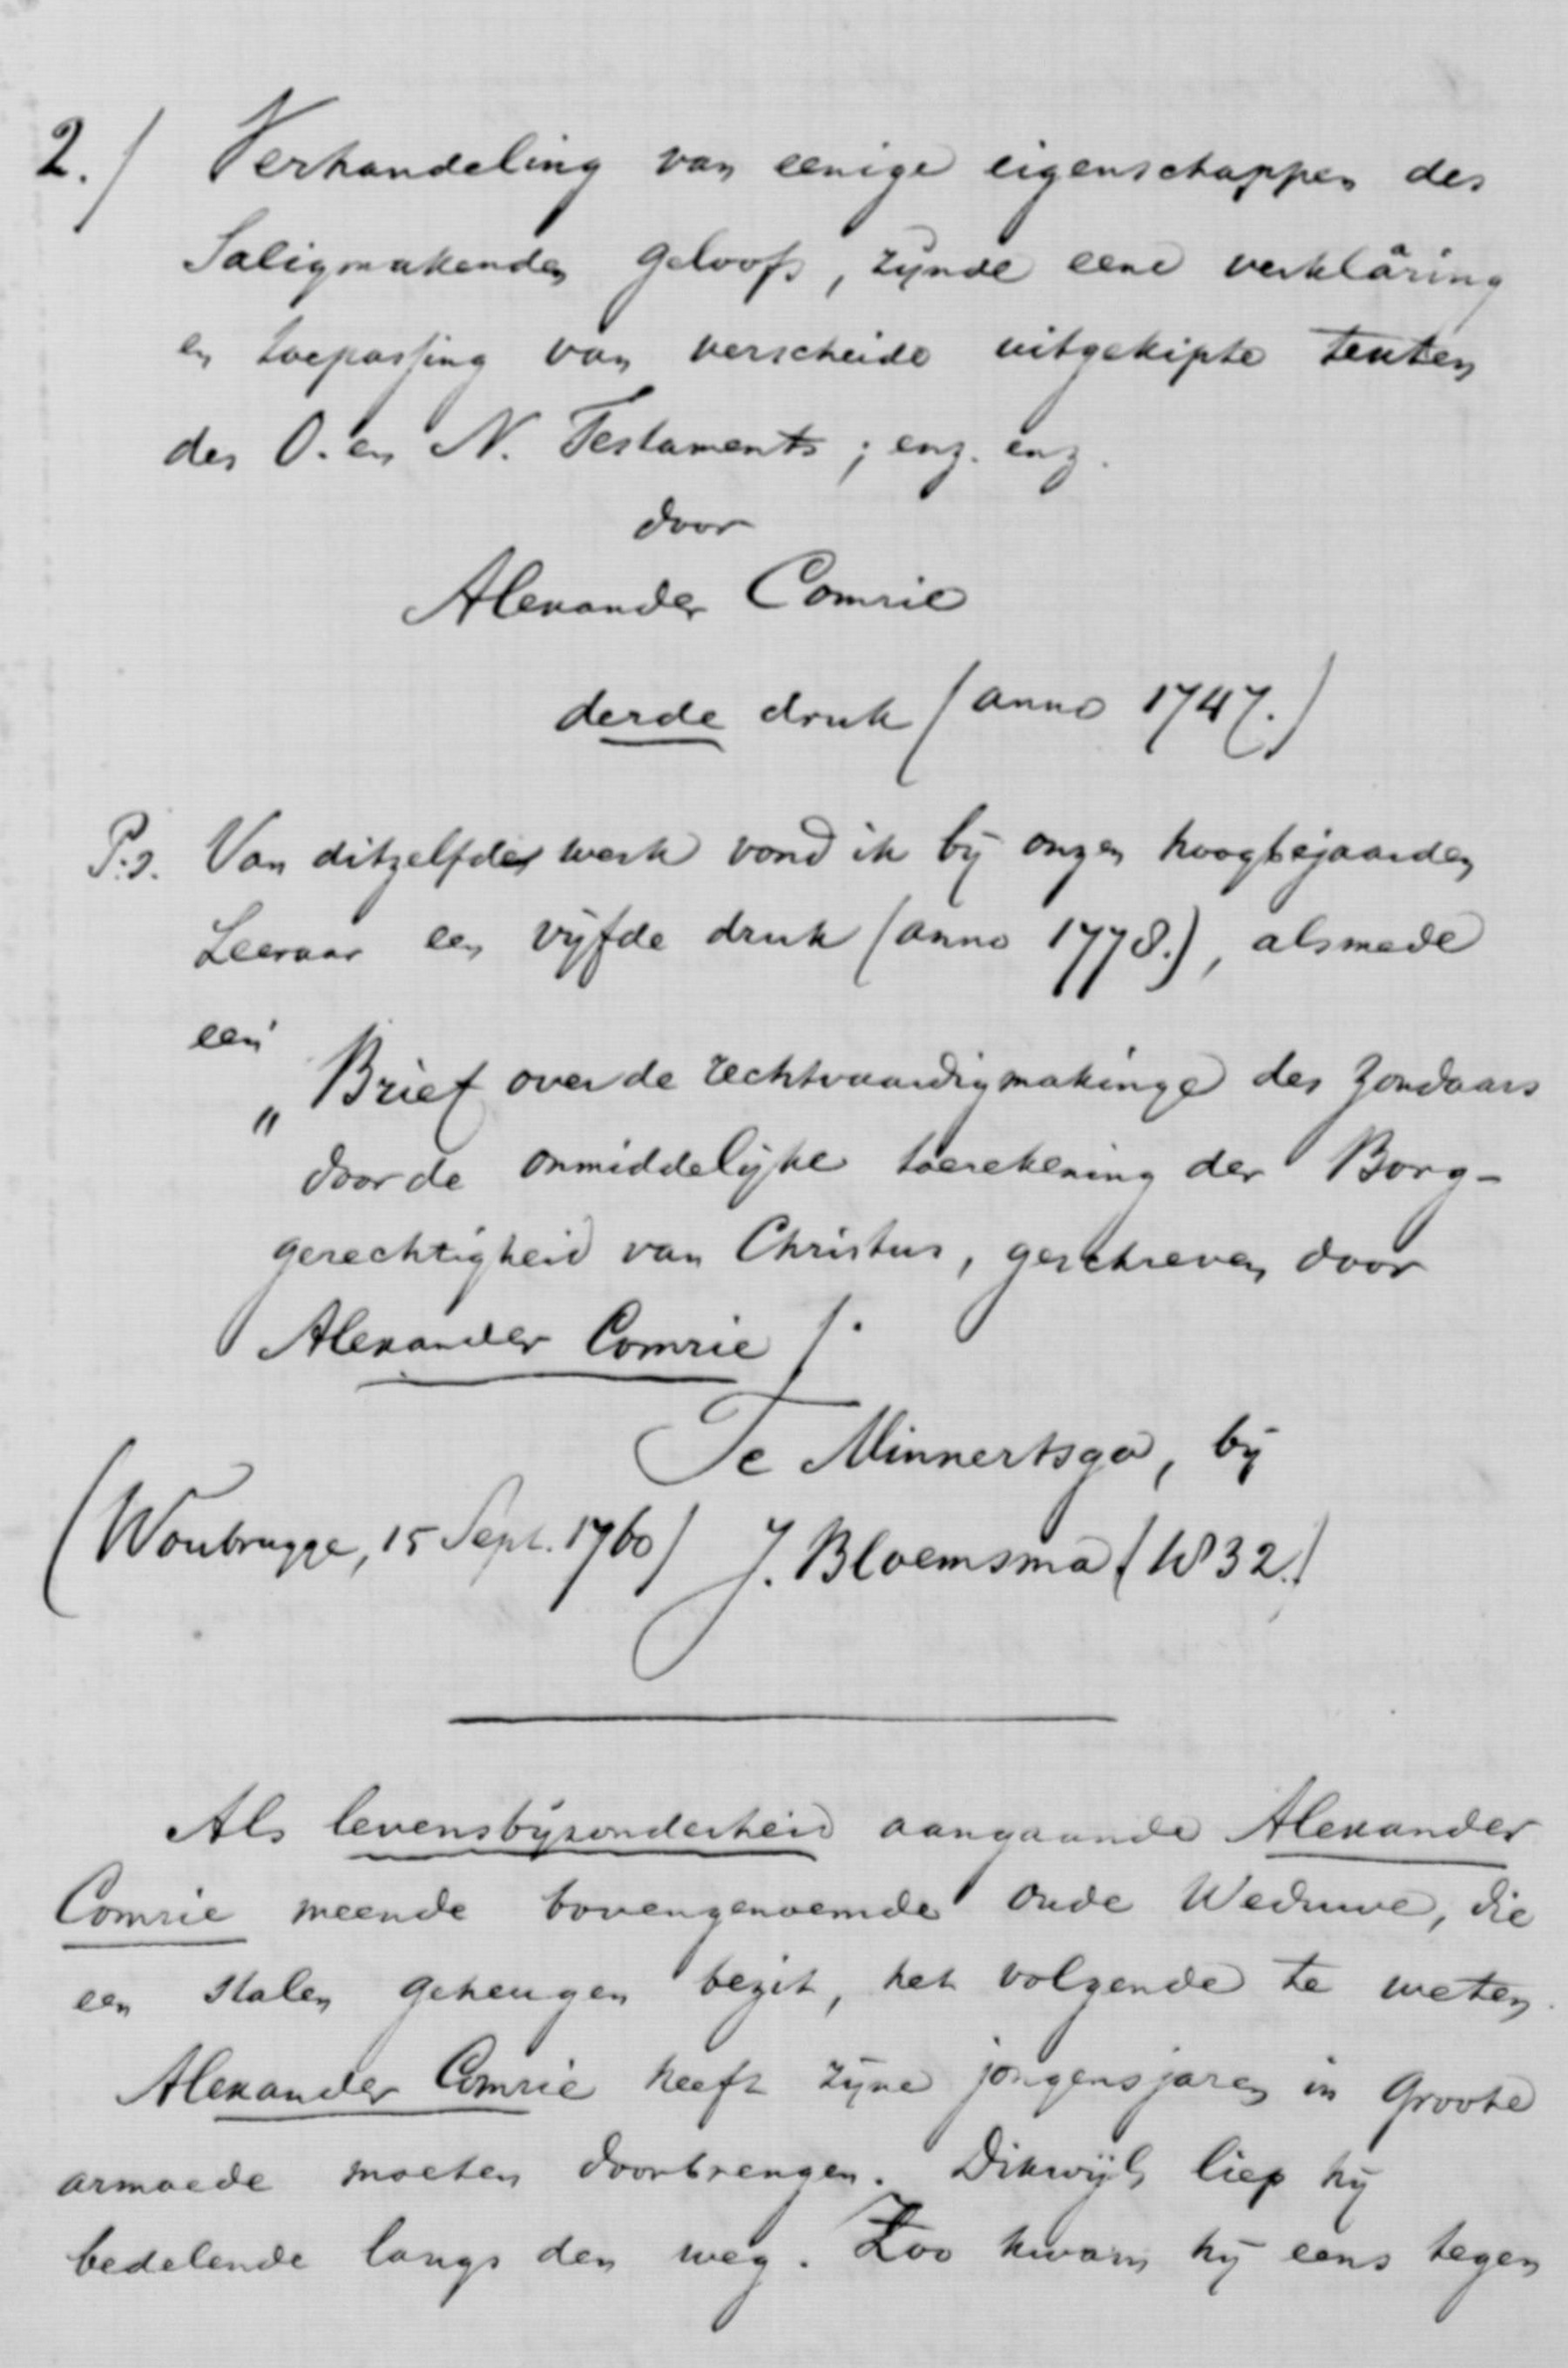 2.) Verhandeling van eenige eigenschappen des
Saligmakenden geloofs, zÿnde eene verklåring
en toepassing van verscheide uitgekipte texten
des O. en N. Testaments; enz. enz.
door
Alexander Comrie
derde druk (anno 1747.)
P.S. Van ditzelfde werk vond ik bÿ onzen hoogbejaarden
Leeraar een vÿfde druk (anno 1778.), alsmede
een
„Brief over de rechtvaardigmakinge des Zondaars
door de onmiddelÿke toerekening der Borg-
gerechtigheid van Christus, geschreven door
Alexander Comrie /.
Te Minnertsga, bÿ
(Woubrugge, 15 Sept. 1760) J. Bloemsma (1832.)
Als levensbÿzonderheid aangaande Alexander
Comrie meende bovengenoemde oude Weduwe, die
een stalen geheugen bezit, het volgende te weten.
Alexander Comrie heeft zÿne jongensjaren in groote
armoede moeten doorbrengen. Dikwÿls liep hÿ
bedelende langs den weg. Zoo kwam hÿ eens tegen